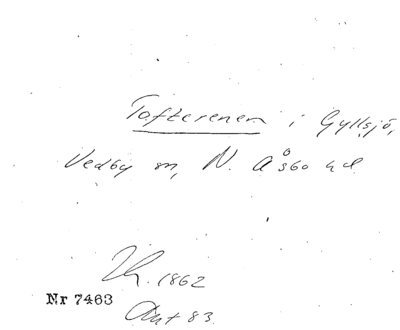 Tofterenen i Gyllsjö,
Vedby sn, N. Åsbo hd
Th. 1862
Nr 7463
Avt 83